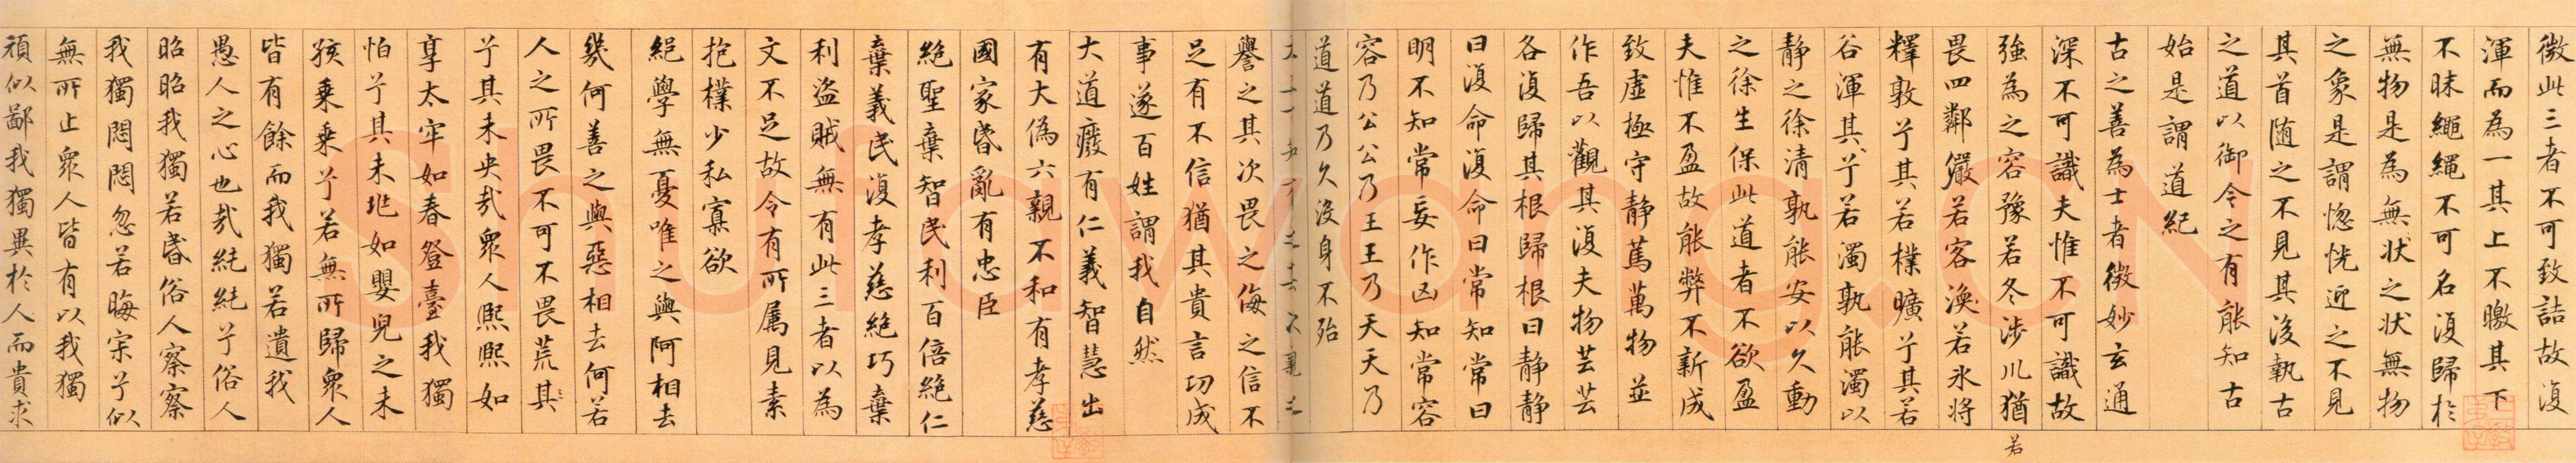 微此三者不可致詰故復
渾而為一其上不皦其下
不昧繩繩不可名復歸於
無物是為無状之状無物
之象是謂惚恍迎之不見
其首随之不見其後執古
之道以御今之有能知古
始是謂道紀
古之善為士者微妙玄通
深不可識夫惟不可識故
強為之容豫若冬涉川猶
若
畏四鄰儼若客渙若氷将
釋敦兮其若樸曠兮其若
谷渾其兮若濁孰能濁以
静之徐清孰能安以久動
之徐生保此道者不欲盈
夫惟不盈故能弊不新成
致虛極守静篤萬物並
作吾以觀其復夫物芸芸
各復歸其根歸根曰静静
曰復命復命曰常知常曰
明不知常妄作凶知常容
容乃公公乃王王乃天天乃
道道乃久沒身不殆
譽之其次畏之侮之信不
足有不信猶其貴言功成
事遂百姓謂我自然
大道廢有仁義智慧出
有大偽六親不和有孝慈
國家昏亂有忠臣
絶聖棄智民利百倍絶仁
棄義民復孝慈絶巧棄
利盗賊無有此三者以為
文不足故令有所属見素
抱樸少私寡欲
絕學無憂唯之與阿相去
幾何善之與惡相去何若
人之所畏不可不畏荒其
兮其未央哉衆人熙熙如
享太牢如春登臺我獨
怕兮其未兆如嬰兒之未
孩乗乗兮若無所歸衆人
皆有餘而我獨若遺我
愚人之心也哉純純兮俗人
昭昭我獨若昏俗人察察
我獨悶悶忽若晦宗兮似
無所止衆人皆有以我獨
頑似鄙我獨異於人而貴求
Shufawang.CN